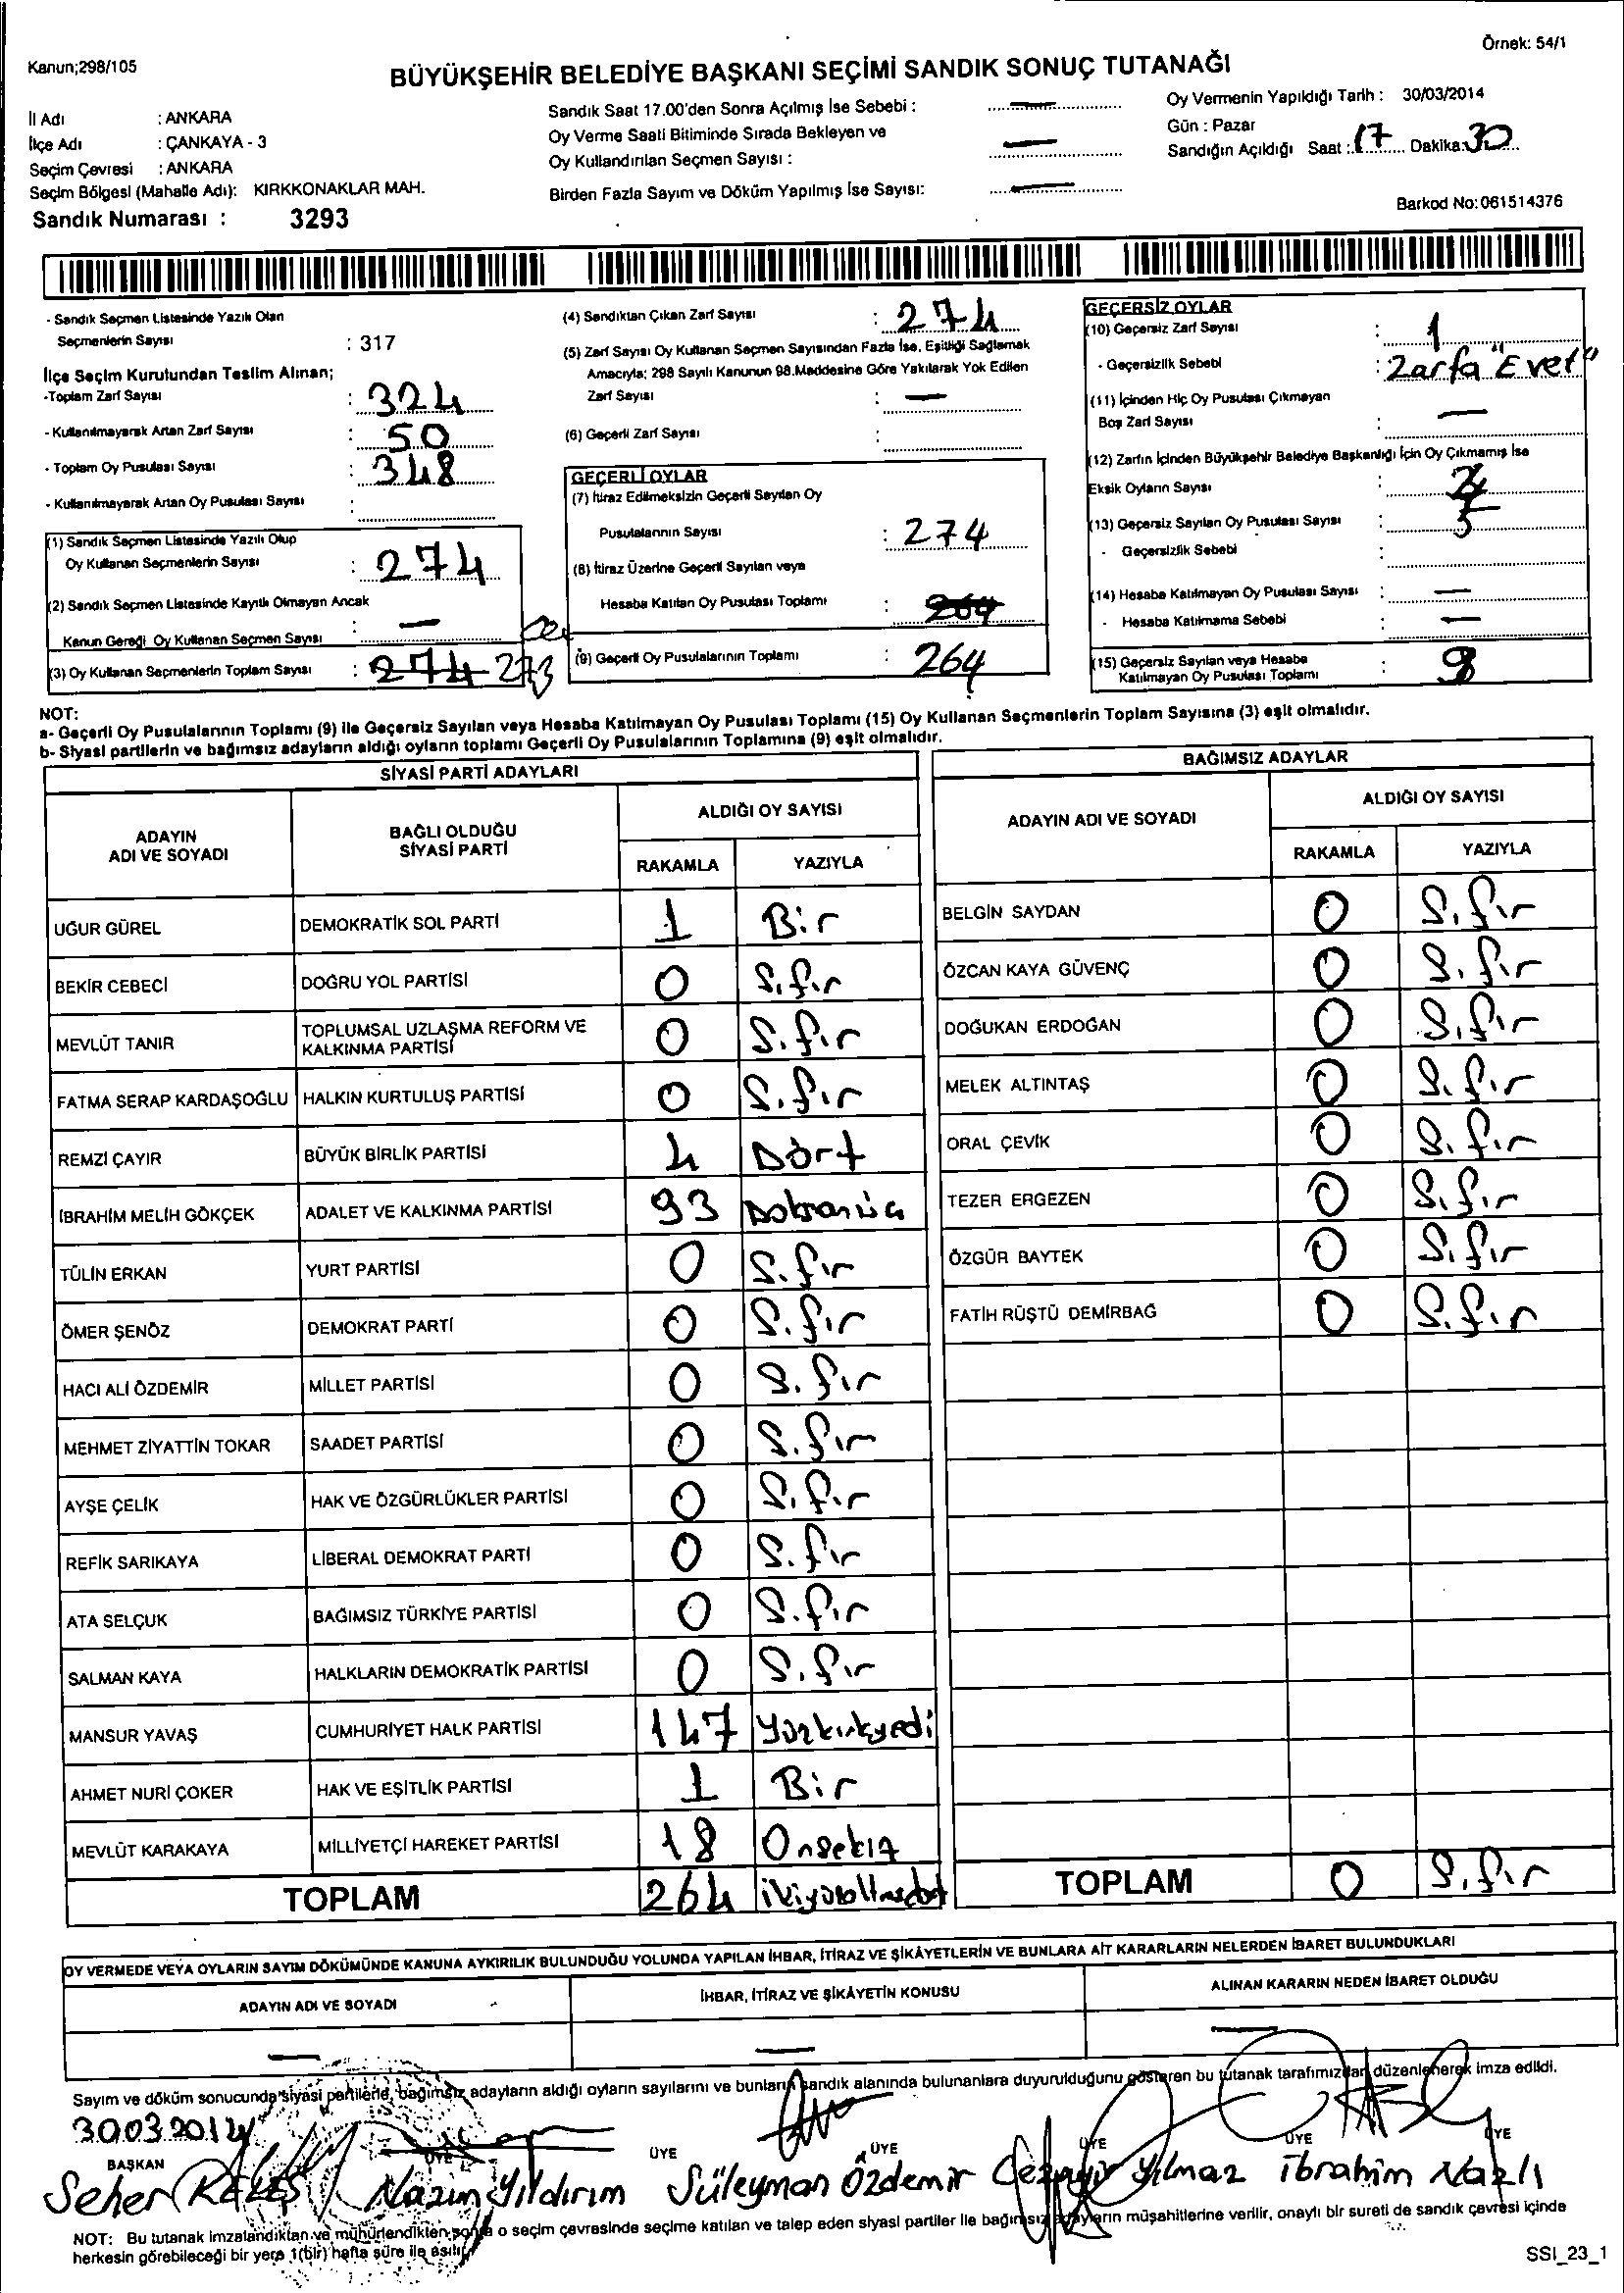 Örnek: 54/1
Kanun;298/105
BÜYÜKŞEHİR BELEDİYE BAŞKANI SEÇİMİ SANDIK SONUÇ TUTANAĞI
İl Adı : ANKARA
İlçe Adı : ÇANKAYA - 3
Seçim Çevresi : ANKARA
Seçim Bölgesi (Mahalle Adı): KIRKKONAKLAR MAH.
Sandık Numarası : 3293
Sandık Saat 17.00'den Sonra Açılmış İse Sebebi : —
Oy Verme Saati Bitiminde Sırada Bekleyen ve
Oy Kullandırılan Seçmen Sayısı : —
Birden Fazla Sayım ve Döküm Yapılmış İse Sayısı: —
Oy Vermenin Yapıldığı Tarih : 30/03/2014
Gün : Pazar
Sandığın Açıldığı Saat : 17 Dakika: 30
Barkod No: 061514376
- Sandık Seçmen Listesinde Yazılı Olan
Seçmenlerin Sayısı : 317
İlçe Seçim Kurulundan Teslim Alınan;
-Toplam Zarf Sayısı : 324
- Kullanılmayarak Artan Zarf Sayısı : 50
- Toplam Oy Pusulası Sayısı : 348
- Kullanılmayarak Artan Oy Pusulası Sayısı :
(1) Sandık Seçmen Listesinde Yazılı Olup
Oy Kullanan Seçmenlerin Sayısı : 274
(2) Sandık Seçmen Listesinde Kayıtlı Olmayan Ancak
Kanun Gereği Oy Kullanan Seçmen Sayısı : —
(3) Oy Kullanan Seçmenlerin Toplam Sayısı : 274 273
(4) Sandıktan Çıkan Zarf Sayısı : 274
(5) Zarf Sayısı Oy Kullanan Seçmen Sayısından Fazla İse, Eşitliği Sağlamak
Amacıyla; 298 Sayılı Kanunun 98.Maddesine Göre Yakılarak Yok Edilen
Zarf Sayısı : —
(6) Geçerli Zarf Sayısı :
GEÇERLİ OYLAR
(7) İtiraz Edilmeksizin Geçerli Sayılan Oy
Pusulalarının Sayısı : 274
(8) İtiraz Üzerine Geçerli Sayılan veya
Hesaba Katılan Oy Pusulası Toplamı : 264
(9) Geçerli Oy Pusulalarının Toplamı : 264
GEÇERSİZ OYLAR
(10) Geçersiz Zarf Sayısı : 1
- Geçersizlik Sebebi : Zarfa "Evet"
(11) İçinden Hiç Oy Pusulası Çıkmayan
Boş Zarf Sayısı : —
(12) Zarfın İçinden Büyükşehir Belediye Başkanlığı İçin Oy Çıkmamış İse
Eksik Oyların Sayısı :
(13) Geçersiz Sayılan Oy Pusulası Sayısı : 5
- Geçersizlik Sebebi :
(14) Hesaba Katılmayan Oy Pusulası Sayısı : —
- Hesaba Katılmama Sebebi : —
(15) Geçersiz Sayılan veya Hesaba
Katılmayan Oy Pusulası Toplamı : 9
NOT:
a- Geçerli Oy Pusulalarının Toplamı (9) ile Geçersiz Sayılan veya Hesaba Katılmayan Oy Pusulası Toplamı (15) Oy Kullanan Seçmenlerin Toplam Sayısına (3) eşit olmalıdır.
b- Siyasi partilerin ve bağımsız adayların aldığı oyların toplamı Geçerli Oy Pusulalarının Toplamına (9) eşit olmalıdır.
SİYASİ PARTİ ADAYLARI
ADAYIN ADI VE SOYADI BAĞLI OLDUĞU SİYASİ PARTİ ALDIĞI OY SAYISI
RAKAMLA YAZIYLA
UĞUR GÜREL DEMOKRATİK SOL PARTİ 1 Bir
BEKİR CEBECİ DOĞRU YOL PARTİSİ 0 Sıfır
MEVLÜT TANIR TOPLUMSAL UZLAŞMA REFORM VE KALKINMA PARTİSİ 0 Sıfır
FATMA SERAP KARDAŞOĞLU HALKIN KURTULUŞ PARTİSİ 0 Sıfır
REMZİ ÇAYIR BÜYÜK BİRLİK PARTİSİ 4 Dört
İBRAHİM MELİH GÖKÇEK ADALET VE KALKINMA PARTİSİ 93 Doksanüç
TÜLİN ERKAN YURT PARTİSİ 0 Sıfır
ÖMER ŞENÖZ DEMOKRAT PARTİ 0 Sıfır
HACI ALİ ÖZDEMİR MİLLET PARTİSİ 0 Sıfır
MEHMET ZİYATTİN TOKAR SAADET PARTİSİ 0 Sıfır
AYŞE ÇELİK HAK VE ÖZGÜRLÜKLER PARTİSİ 0 Sıfır
REFİK SARIKAYA LİBERAL DEMOKRAT PARTİ 0 Sıfır
ATA SELÇUK BAĞIMSIZ TÜRKİYE PARTİSİ 0 Sıfır
SALMAN KAYA HALKLARIN DEMOKRATİK PARTİSİ 0 Sıfır
MANSUR YAVAŞ CUMHURİYET HALK PARTİSİ 147 Yüzkırkyedi
AHMET NURİ ÇOKER HAK VE EŞİTLİK PARTİSİ 1 Bir
MEVLÜT KARAKAYA MİLLİYETÇİ HAREKET PARTİSİ 18 Onsekiz
TOPLAM 264 ikiyüzaltmışdört
BAĞIMSIZ ADAYLAR
ADAYIN ADI VE SOYADI ALDIĞI OY SAYISI
RAKAMLA YAZIYLA
BELGİN SAYDAN 0 Sıfır
ÖZCAN KAYA GÜVENÇ 0 Sıfır
DOĞUKAN ERDOĞAN 0 Sıfır
MELEK ALTINTAŞ 0 Sıfır
ORAL ÇEVİK 0 Sıfır
TEZER ERGEZEN 0 Sıfır
ÖZGÜR BAYTEK 0 Sıfır
FATİH RÜŞTÜ DEMİRBAĞ 0 Sıfır
TOPLAM 0 Sıfır
OY VERMEDE VEYA OYLARIN SAYIM DÖKÜMÜNDE KANUNA AYKIRILIK BULUNDUĞU YOLUNDA YAPILAN İHBAR, İTİRAZ VE ŞİKÂYETLERİN VE BUNLARA AİT KARARLARIN NELERDEN İBARET BULUNDUKLARI
ADAYIN ADI VE SOYADI İHBAR, İTİRAZ VE ŞİKÂYETİN KONUSU ALINAN KARARIN NEDEN İBARET OLDUĞU
— — —
Sayım ve döküm sonucunda siyasi partilerle, bağımsız adayların aldığı oyların sayılarını ve bunların sandık alanında bulunanlara duyurulduğunu gösteren bu tutanak tarafımızdan düzenlenerek imza edildi.
30.03.2014
BAŞKAN ÜYE ÜYE ÜYE ÜYE ÜYE ÜYE
Seher KELEŞ Nazım Yıldırım Süleyman Özdemir Cezayir Yılmaz İbrahim Nazlı
NOT: Bu tutanak imzalandıktan ve mühürlendikten sonra o seçim çevresinde seçime katılan ve talep eden siyasi partiler ile bağımsız adayların müşahitlerine verilir, onaylı bir sureti de sandık çevresi içinde
herkesin görebileceği bir yere 1(bir) hafta süre ile asılır.
SSI_23_1